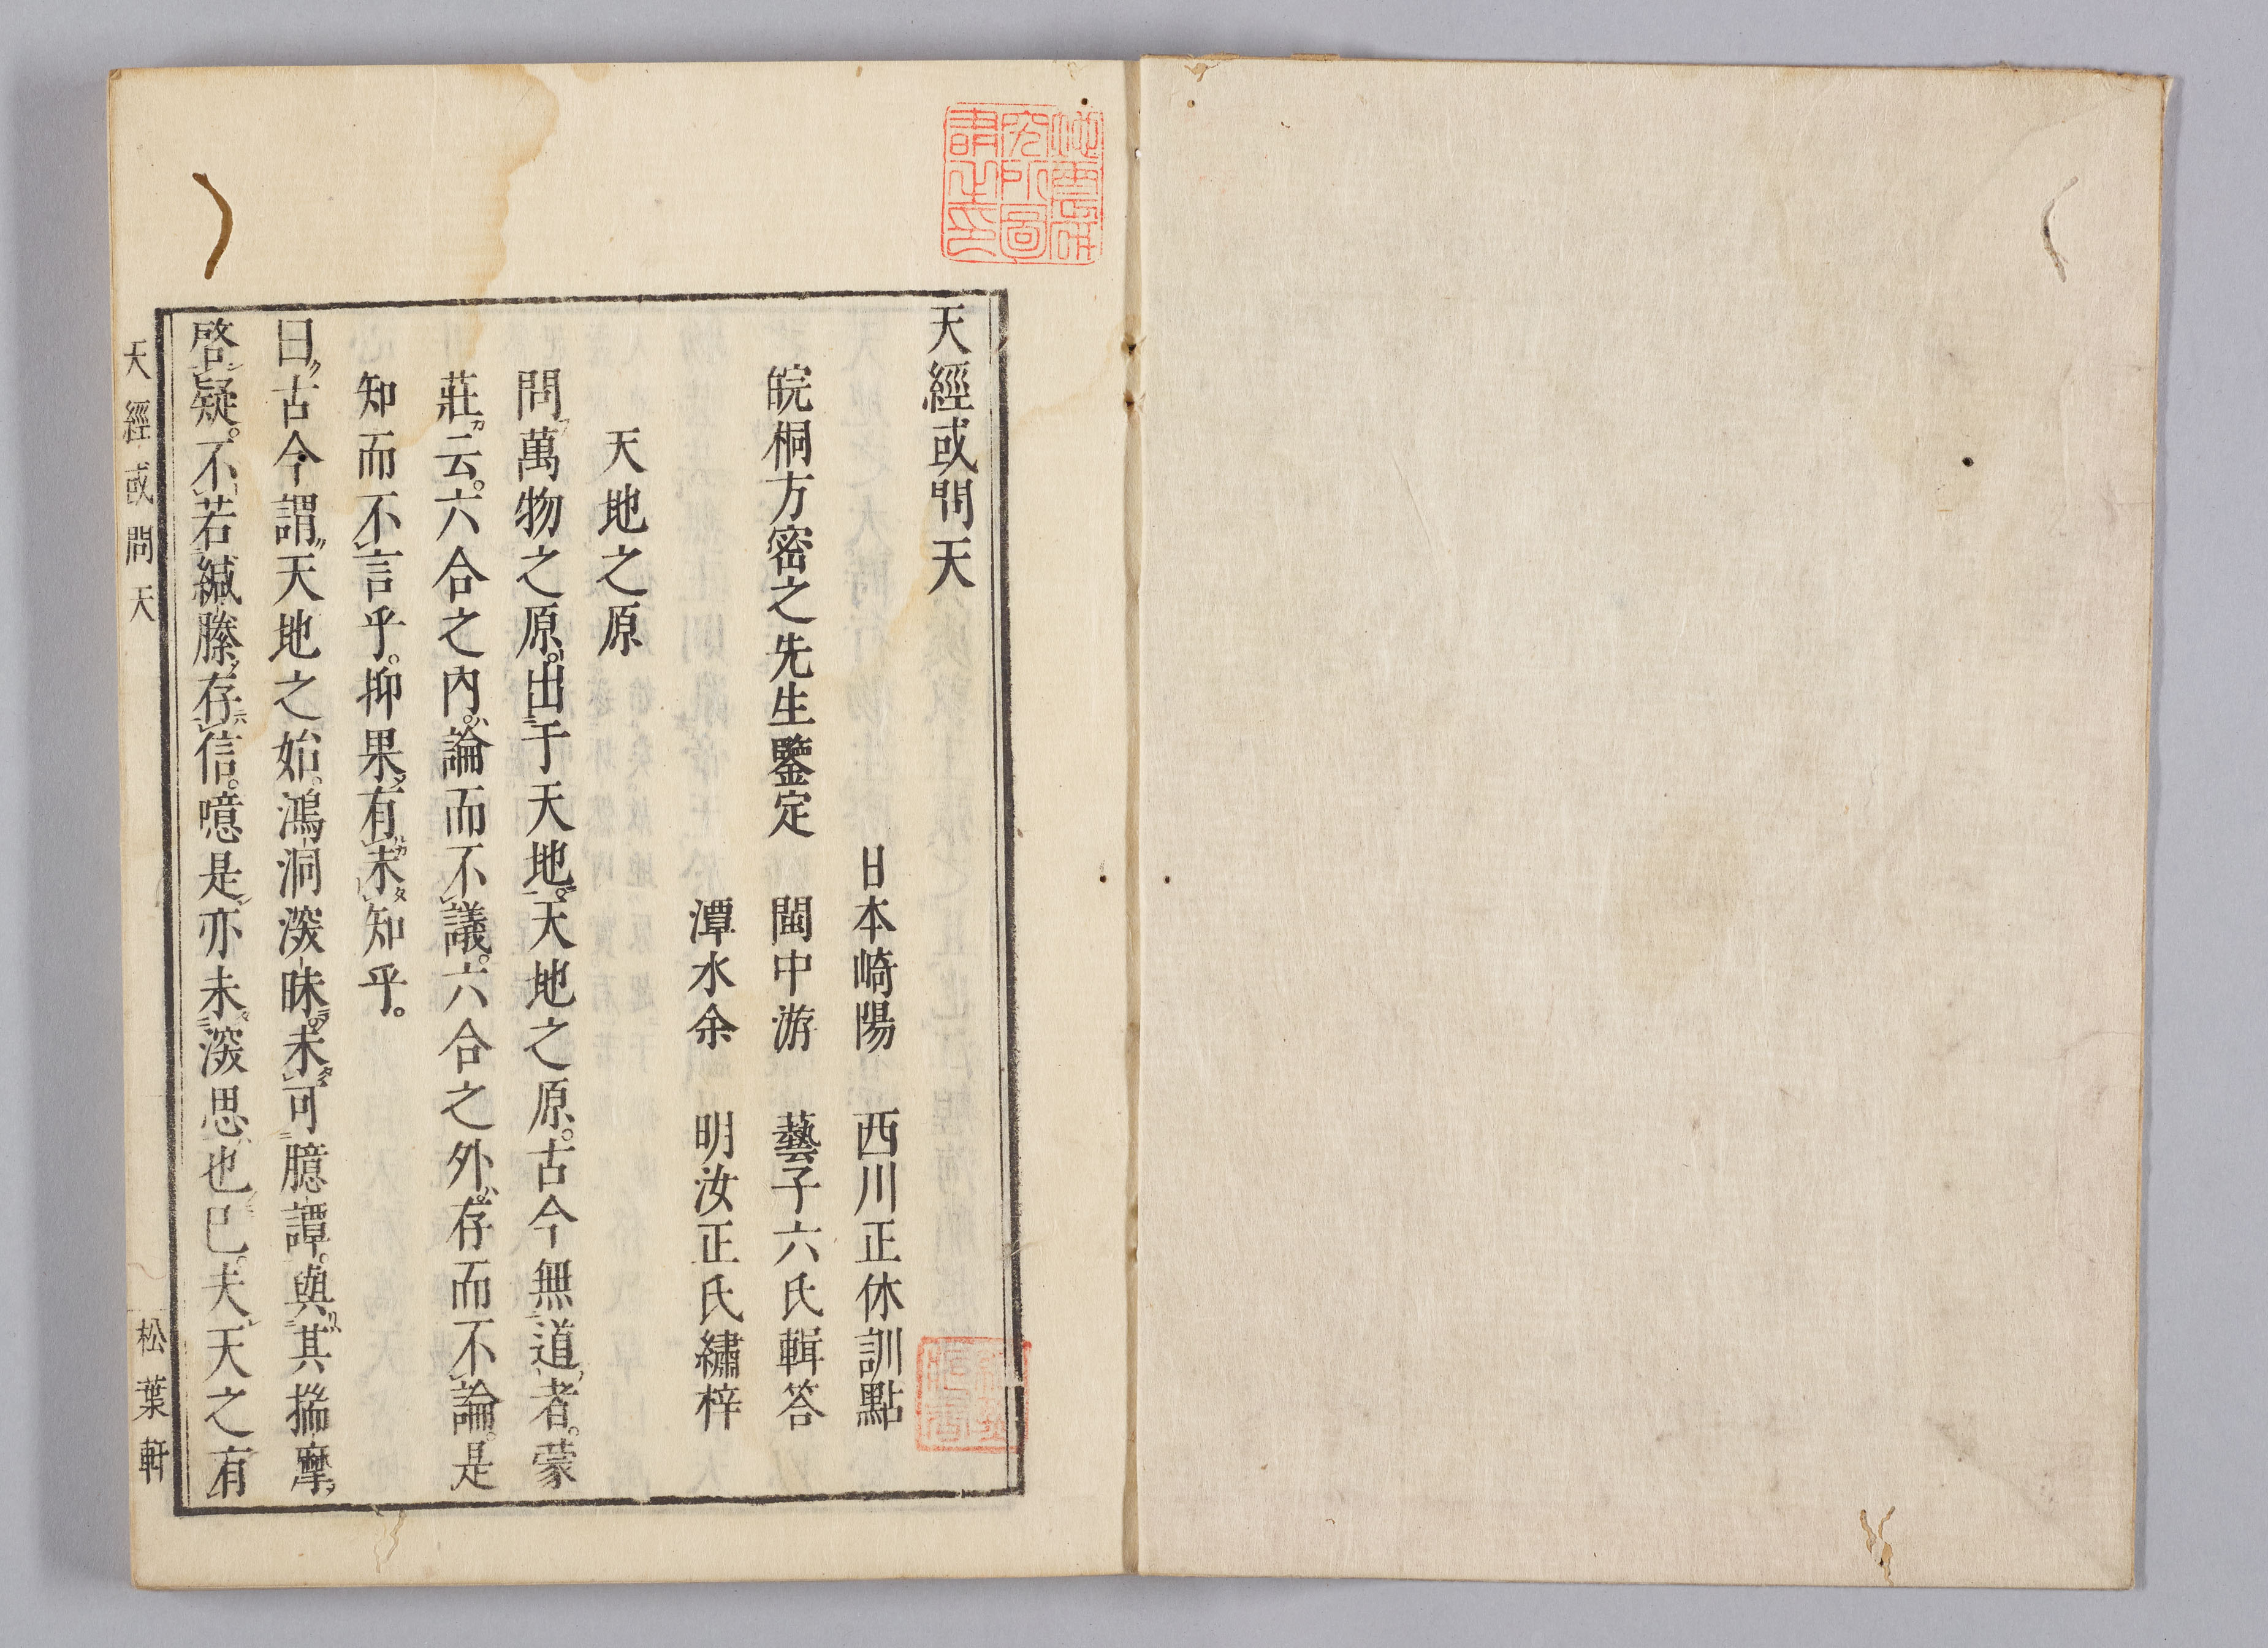 天經或問天
日本崎陽 西川正休訓點
皖桐方密之先生鑒定 閩中游 藝子六氏輯答
潭水余 明汝正氏繡梓
天地之原
問萬物之原。出于天地。天地之原。古今無道者。蒙
莊云。六合之內。論而不議。六合之外。存而不論。是
知而不言乎。抑果有未知乎。
曰古今謂天地之始。鴻洞深昧。未可臆譚。與其揣摩
啓疑。不若緘縢存信。噫是亦未深思也已。夫天之有
天經或問天
松葉軒
地震研
究所圖
書之印